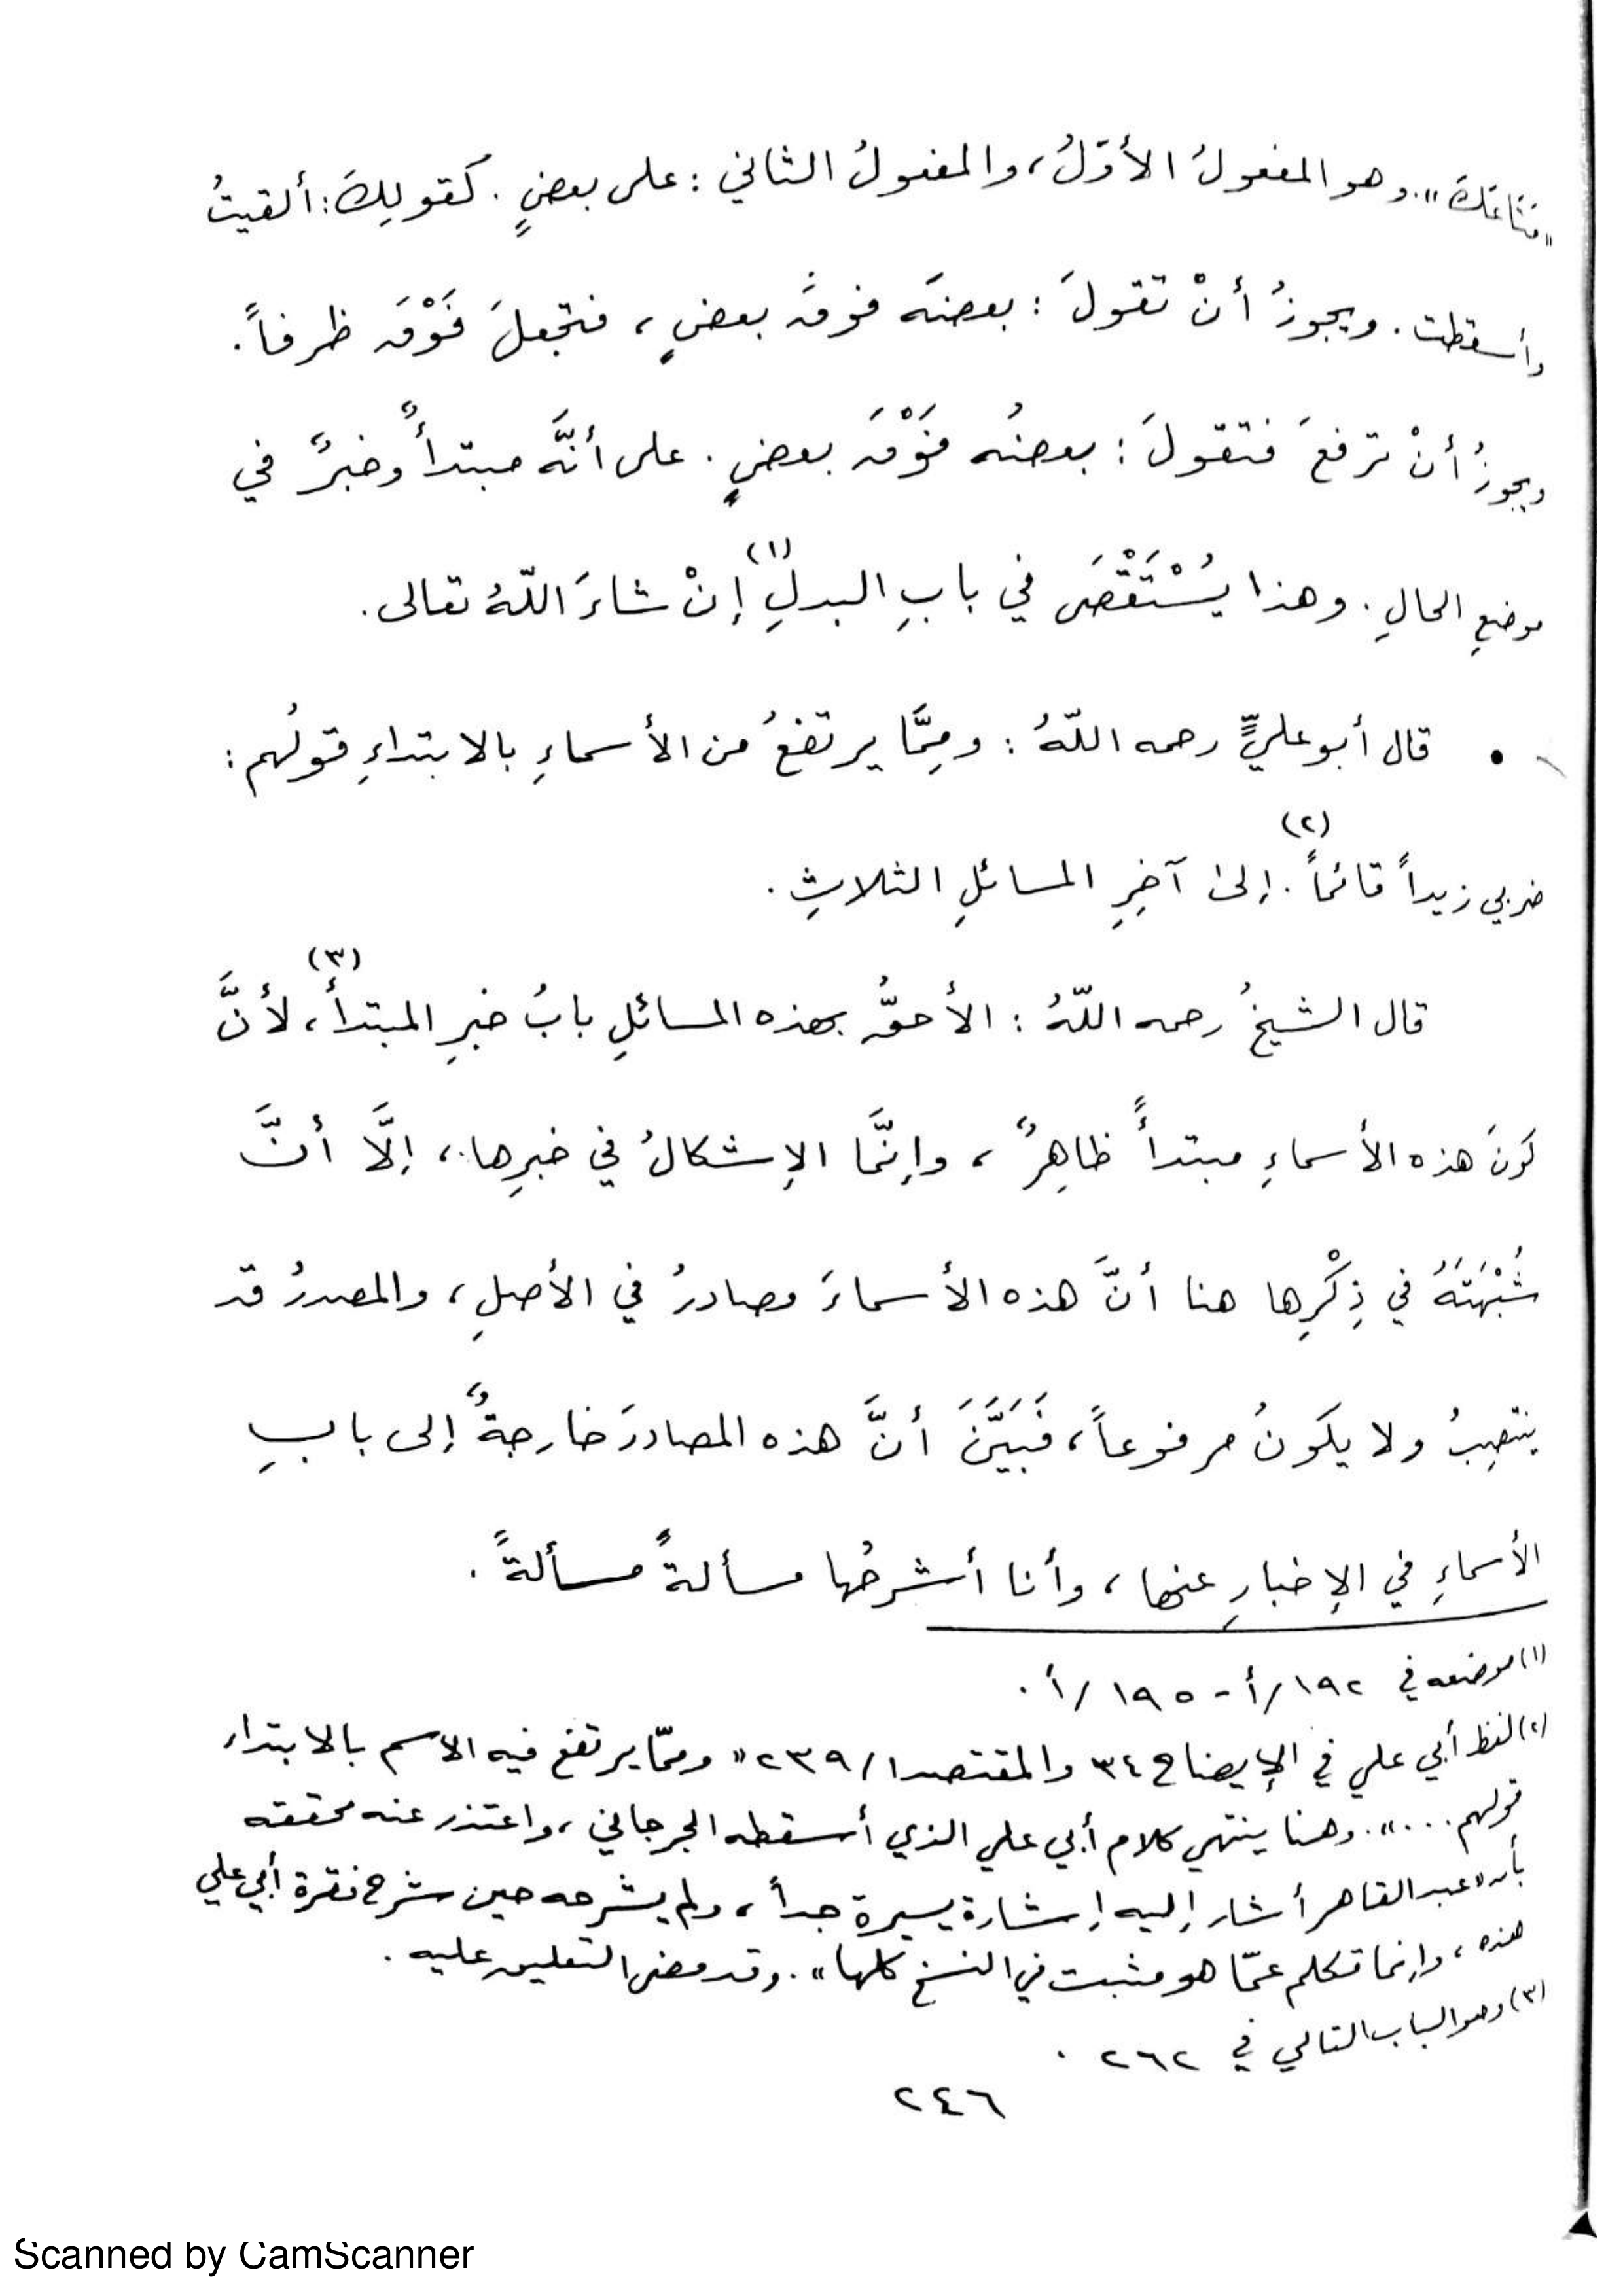 "مَتَاعَكَ". وهو المفعولُ الأوّلُ، والمفعولُ الثاني: على بعضٍ. كقولِكَ: ألقيتُ
وأسقطت. ويجوزُ أنْ تقولَ: بعضَه فوقَ بعضٍ، فتجعلَ فَوْقَ ظرفاً.
ويجوزُ أنْ ترفعَ فتقولَ: بعضُه فَوْقَ بعضٍ. على أنَّه مبتدأٌ وخبرٌ في
موضعِ الحالِ. وهذا يُسْتَقْصَى في بابِ البدلِ(١) إنْ شاءَ اللّهُ تعالى.
• قال أبو عليٍّ رحمه اللّهُ: ومِمَّا يرتفعُ من الأسماءِ بالابتداءِ قولُهم:
ضربي زيداً قائماً(٢). إلىٰ آخِرِ المسائلِ الثلاثِ.
قال الشيخُ رحمه اللّهُ: الأحقُّ بهذه المسائلِ بابُ خبرِ المبتدأ(٣)، لأنَّ
كونَ هذه الأسماءِ مبتدأً ظاهِرٌ، وإنَّما الإشكالُ في خبرِها، إلَّا أنَّ
شُبْهَتَهُ في ذِكْرِها هنا أنَّ هذه الأسماءَ مصادرُ في الأصلِ، والمصدرُ قد
ينتصِبُ ولا يكونُ مرفوعاً، فَبَيَّنَ أنَّ هذه المصادرَ خارجةٌ إلى بابِ
الأسماءِ في الإخبارِ عنها، وأنا أشرحُها مسألةً مسألةً.
(١) موضعه في ١٩٢/أ - ١٩٥/أ.
(٢) لفظ أبي علي في الإيضاح ٣٤ والمقتصد ١/٢٣٩ "وممّا يرتفع فيه الاسم بالابتداء
قولهم...". وهنا ينتهي كلام أبي علي الذي أسقطه الجرجاني، واعتذر عنه محققه
بأن "عبد القاهر أشار إليه إشارة يسيرة جداً، ولم يشرحه حين شرح فقرة أبي علي
هذه، وإنما تكلم عمّا هو مثبت في النسخ كلها". وقد مضى التعليق عليه.
(٣) وهو الباب التالي في ٢٦٢.
٢٤٦
Scanned by CamScanner